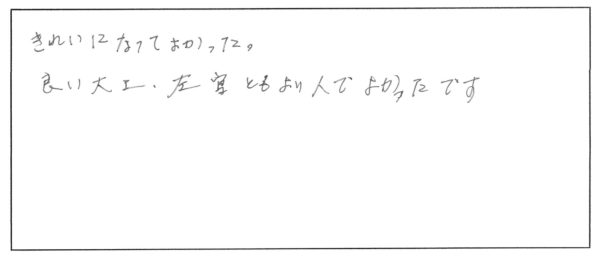 きれいになってよかった。
良い大工・左官ともよい人でよかったです